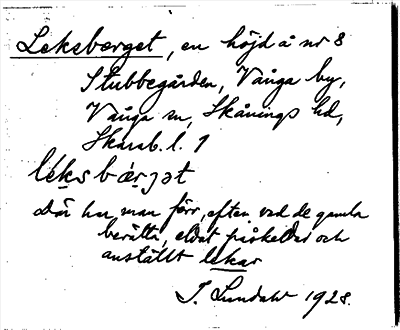 Leksberget, en höjd å nr 8
Stubbegården, Vånga by,
Vånga sn, Skånings hd,
Skarab. l. 1
léksbærjət
där har man förr, efter vad de gamla
berätta, eldat påskeldar och
anställt lekar
J. Lundahl 1928.